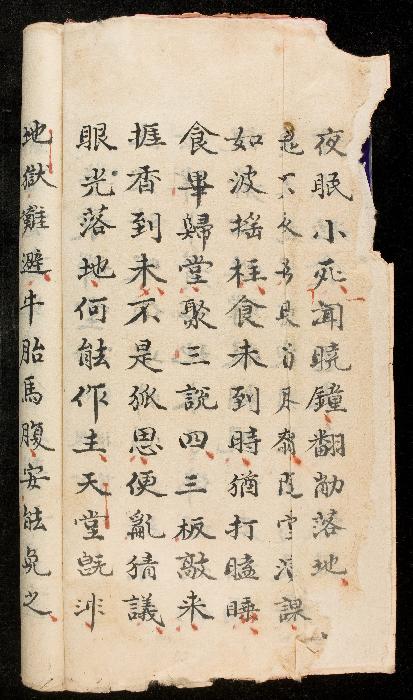 夜眠小死聞曉鐘翻敲落地
堂課
如波搖柱食未到時猶打瞌睡
食畢歸堂聚三說四三板敲来
捱香到未不是孤思便亂猜議
眼光落地何能作主天堂旣非
地獄難避牛胎馬腹安能免之